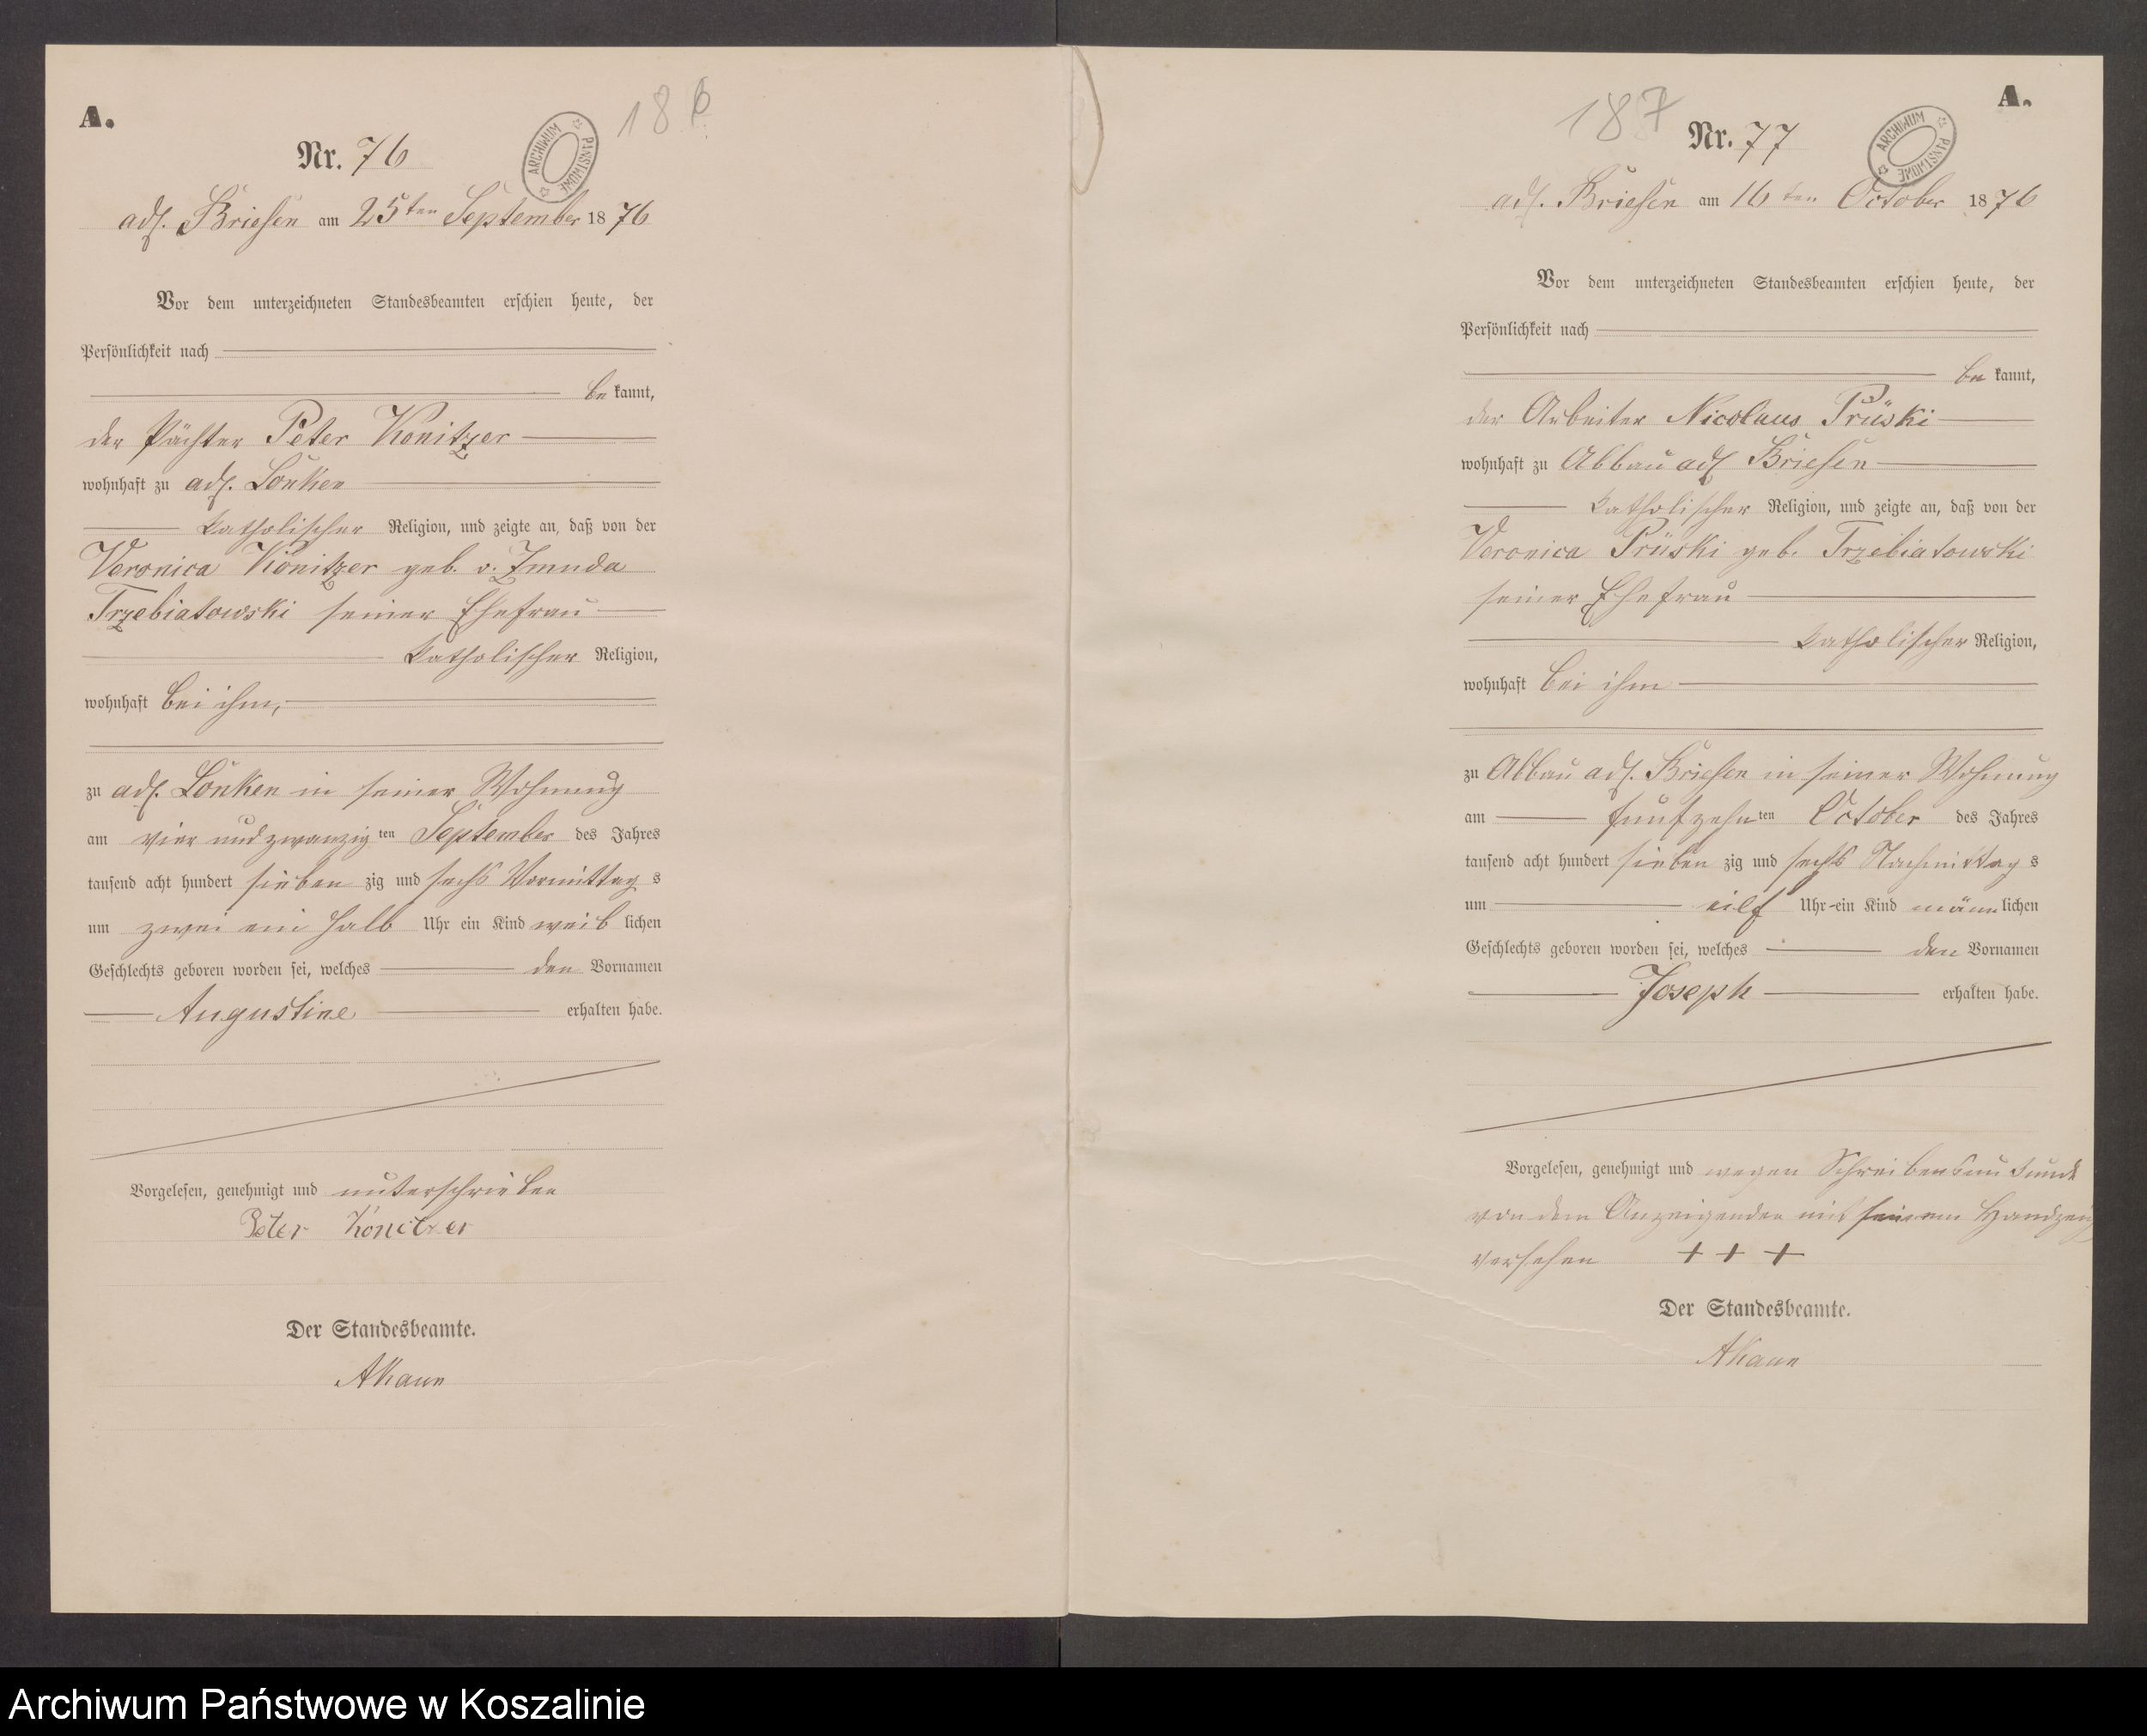 A.
186
Nr. 76
ARCHIWUM PAŃSTWOWE
adl. Briesen am 25ten September 1876
Vor dem unterzeichneten Standesbeamten erschien heute, der
Persönlichkeit nach
be kannt,
der Pächter Peter Konitzer
wohnhaft zu adl. Lonken
katholischer Religion, und zeigte an, daß von der
Veronica Konitzer geb. v. Zmuda
Trzebiatowski seiner Ehefrau
katholischer Religion,
wohnhaft bei ihm,
zu adl. Lonken in seiner Wohnung
am vier und zwanzig ten September des Jahres
tausend acht hundert sieben zig und sechs Vormittag s
um zwei ein halb Uhr ein Kind weib lichen
Geschlechts geboren worden sei, welches den Vornamen
Augustine erhalten habe.
Vorgelesen, genehmigt und unterschrieben
Peter Konitzer
Der Standesbeamte.
A.
187
Nr. 77
ARCHIWUM PAŃSTWOWE
adl. Briesen am 16ten October 1876
Vor dem unterzeichneten Standesbeamten erschien heute, der
Persönlichkeit nach
be kannt,
der Arbeiter Nicolaus Prüski
wohnhaft zu Abbau adl Briesen
katholischer Religion, und zeigte an, daß von der
Veronica Prüski geb. Trzebiatowski
seiner Ehefrau
katholischer Religion,
wohnhaft bei ihm
zu Abbau adl. Briesen in seiner Wohnung
am fünfzehn ten October des Jahres
tausend acht hundert sieben zig und sechs Nachmittag s
um eilf Uhr ein Kind männ lichen
Geschlechts geboren worden sei, welches den Vornamen
Joseph erhalten habe.
Vorgelesen, genehmigt und wegen Schreibensunkunde
von dem Anzeigenden mit seinem
versehen + + +
Der Standesbeamte.
Archiwum Państwowe w Koszalinie